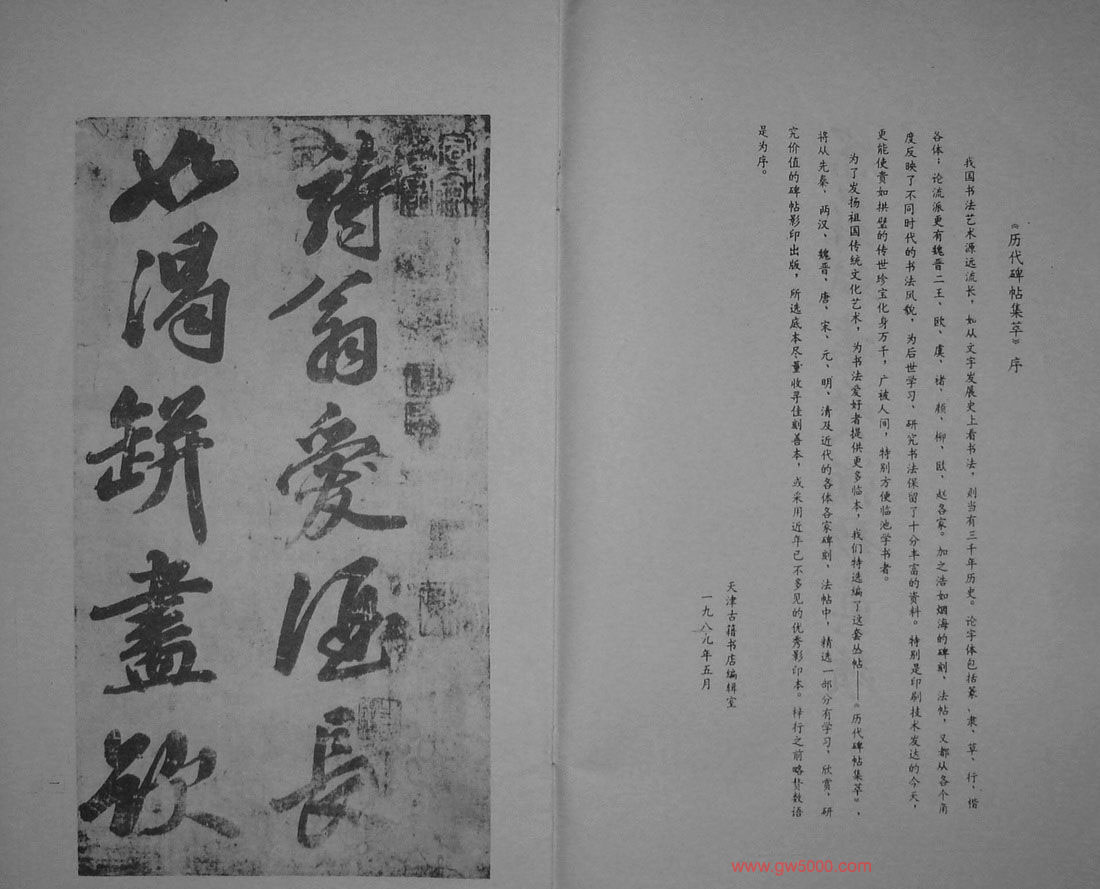 《历代碑帖集萃》序
我国书法艺术源远流长，如从文字发展史上看书法，则当有三千年历史。论字体包括篆、隶、草、行、楷
各体；论流派更有魏晋二王、欧、虞、褚、颜、柳、欧、赵各家。加之浩如烟海的碑刻、法帖，又都从各个角
度反映了不同时代的书法风貌，为后世学习、研究书法保留了十分丰富的资料。特别是印刷技术发达的今天，
更能使贵如拱璧的传世珍宝化身万千，广被人间，特别方便临池学书者。
为了发扬祖国传统文化艺术，为书法爱好者提供更多临本，我们特选编了这套丛帖——《历代碑帖集萃》，
将从先秦、两汉、魏晋、唐、宋、元、明、清及近代的各体各家碑刻、法帖中，精选一部分有学习、欣赏、研
究价值的碑帖影印出版，所选底本尽量收寻佳刻善本，或采用近年已不多见的优秀影印本。梓行之前略赘数语
是为序。
天津古籍书店编辑室
一九八九年五月
詩翁愛酒長
如渴缾盡欲
一
www.gw5000.com